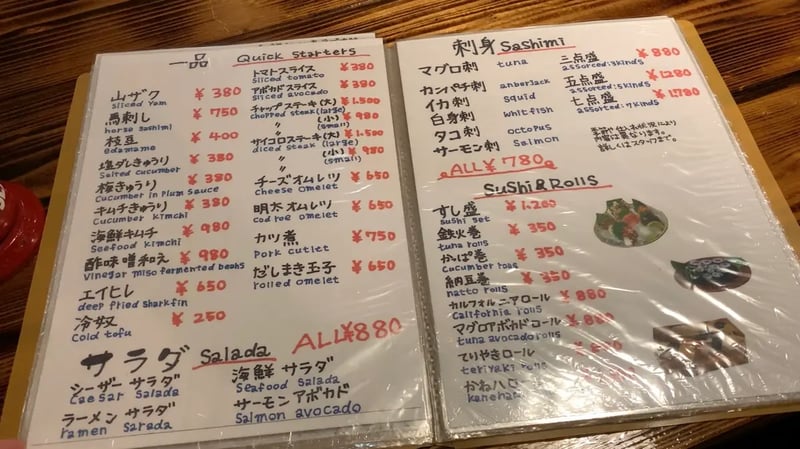 一品 Quick Starters
山ザク ¥380
Sliced Yam
馬刺し ¥750
horse sashimi
枝豆 ¥400
edamame
塩ダレきゅうり ¥350
Salted cucumber
梅きゅうり ¥380
Cucumber in Plum Sauce
キムチきゅうり ¥380
Cucumber kimchi
海鮮キムチ ¥980
Seefood kimchi
酢味噌和え ¥980
Vinegar miso fermented beans
エイヒレ ¥650
deep fried Sharkfin
冷奴 ¥250
Cold tofu
トマトスライス ¥380
Sliced tomato
アボカドスライス ¥380
Sliced avocado
チャップステーキ(大) ¥1.500
chopped steak (large)
〃 (小) ¥980
(small)
サイコロステーキ(大) ¥1.500
diced steak (large)
〃 (小) ¥980
(small)
チーズオムレツ ¥650
Cheese omelet
明太オムレツ ¥650
Cod roe omelet
カツ煮 ¥750
Pork cutlet
だしまき玉子 ¥650
rolled omelet
サラダ Salada ALL¥880
シーザーサラダ
Caesar Salada
ラーメンサラダ
ramen Sarada
海鮮サラダ
Seafood Salada
サーモンアボカド
Salmon avocado
刺身 Sashimi
マグロ刺 tuna
カンパチ刺 amberJack
イカ刺 squid
白身刺 whitfish
タコ刺 octopus
サーモン刺 Salmon
ALL¥780
三点盛 ¥880
assorted:3kinds
五点盛 ¥1.280
assorted:5kinds
七点盛 ¥1,780
assorted:7kinds
季節や仕入れ状況により
内容は異なります。
詳しくはスタッフまで。
SuShi&Rolls
すし盛 ¥1.200
sushi set
鉄火巻 ¥350
tuna rolls
かっぱ巻 ¥350
cucumber
納豆巻 ¥350
natto rolls
カルフォルニアロール ¥880
California rolls
マグロアボカドロール
tuna avocado rolls
てりやきロール
teriyaki